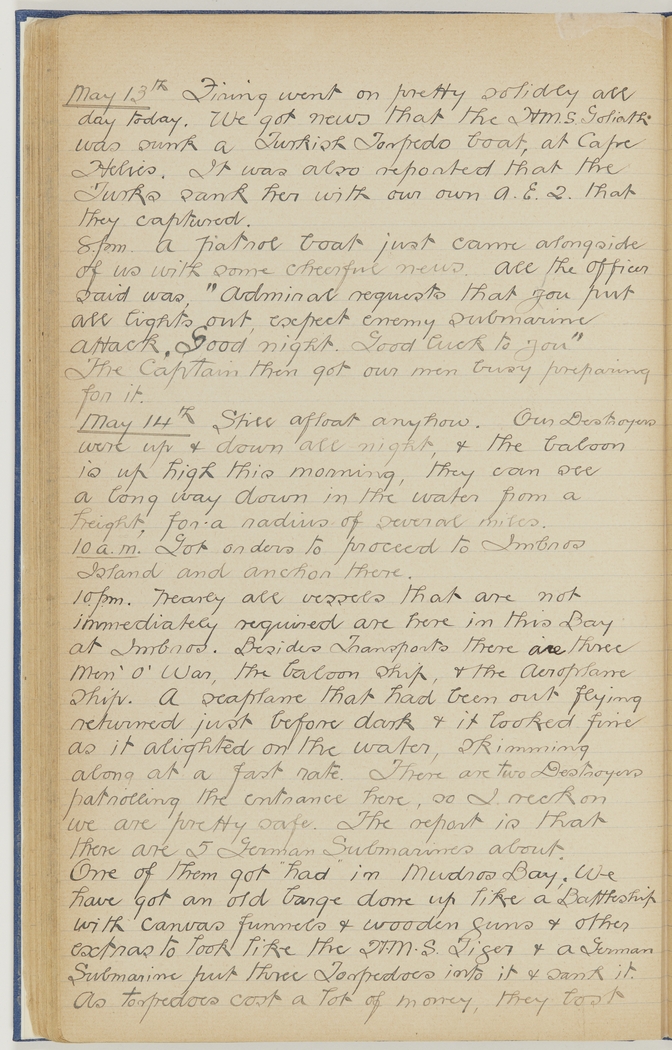 May 13th Firing went on pretty solidly all
day today. We got news that the H.M.S. Goliath
was sunk a Turkish Torpedo boat, at Cape
Helies. It was also reported that the
Turks sank her with our own A.E.2. that
they captured.
8.pm. A patrol boat just came alongside
of us with some cheerful news. All the officer
said was, "Admiral requests that you put
all lights out, expect enemy submarine
attack. Good night. Good luck to you"
The Captain then got our men busy preparing
for it.
May 14th Still afloat anyhow. Our Destroyers
were up & down all night, & the baloon
is up high this morning, they can see
a long way down in the water from a
height, for a radius of several miles.
10 a.m. Got orders to proceed to Imbros
Island and anchor there.
10pm. Nearly all vessels that are not
immediately required are here in this Bay
at Imbros. Besides Transports there are three
Men' O' War, the baloon ship, & the Aeroplane
ship. A seaplane that had been out flying
returned just before dark & it looked fine
as it alighted on the water, skimming
along at a fast rate. There are two Destroyers
patrolling the entrance here, so I reckon
we are pretty safe. The report is that
there are 5 German Submarines about.
One of them got "had" in Mudros Bay. We
have got an old barge done up like a Battleship
with canvas funnels & wooden guns & other
extras to look like the H.M.S. Tiger & a German
Submarine put three Torpedoes into it & sank it.
As torpedoes cost a lot of money, they lost